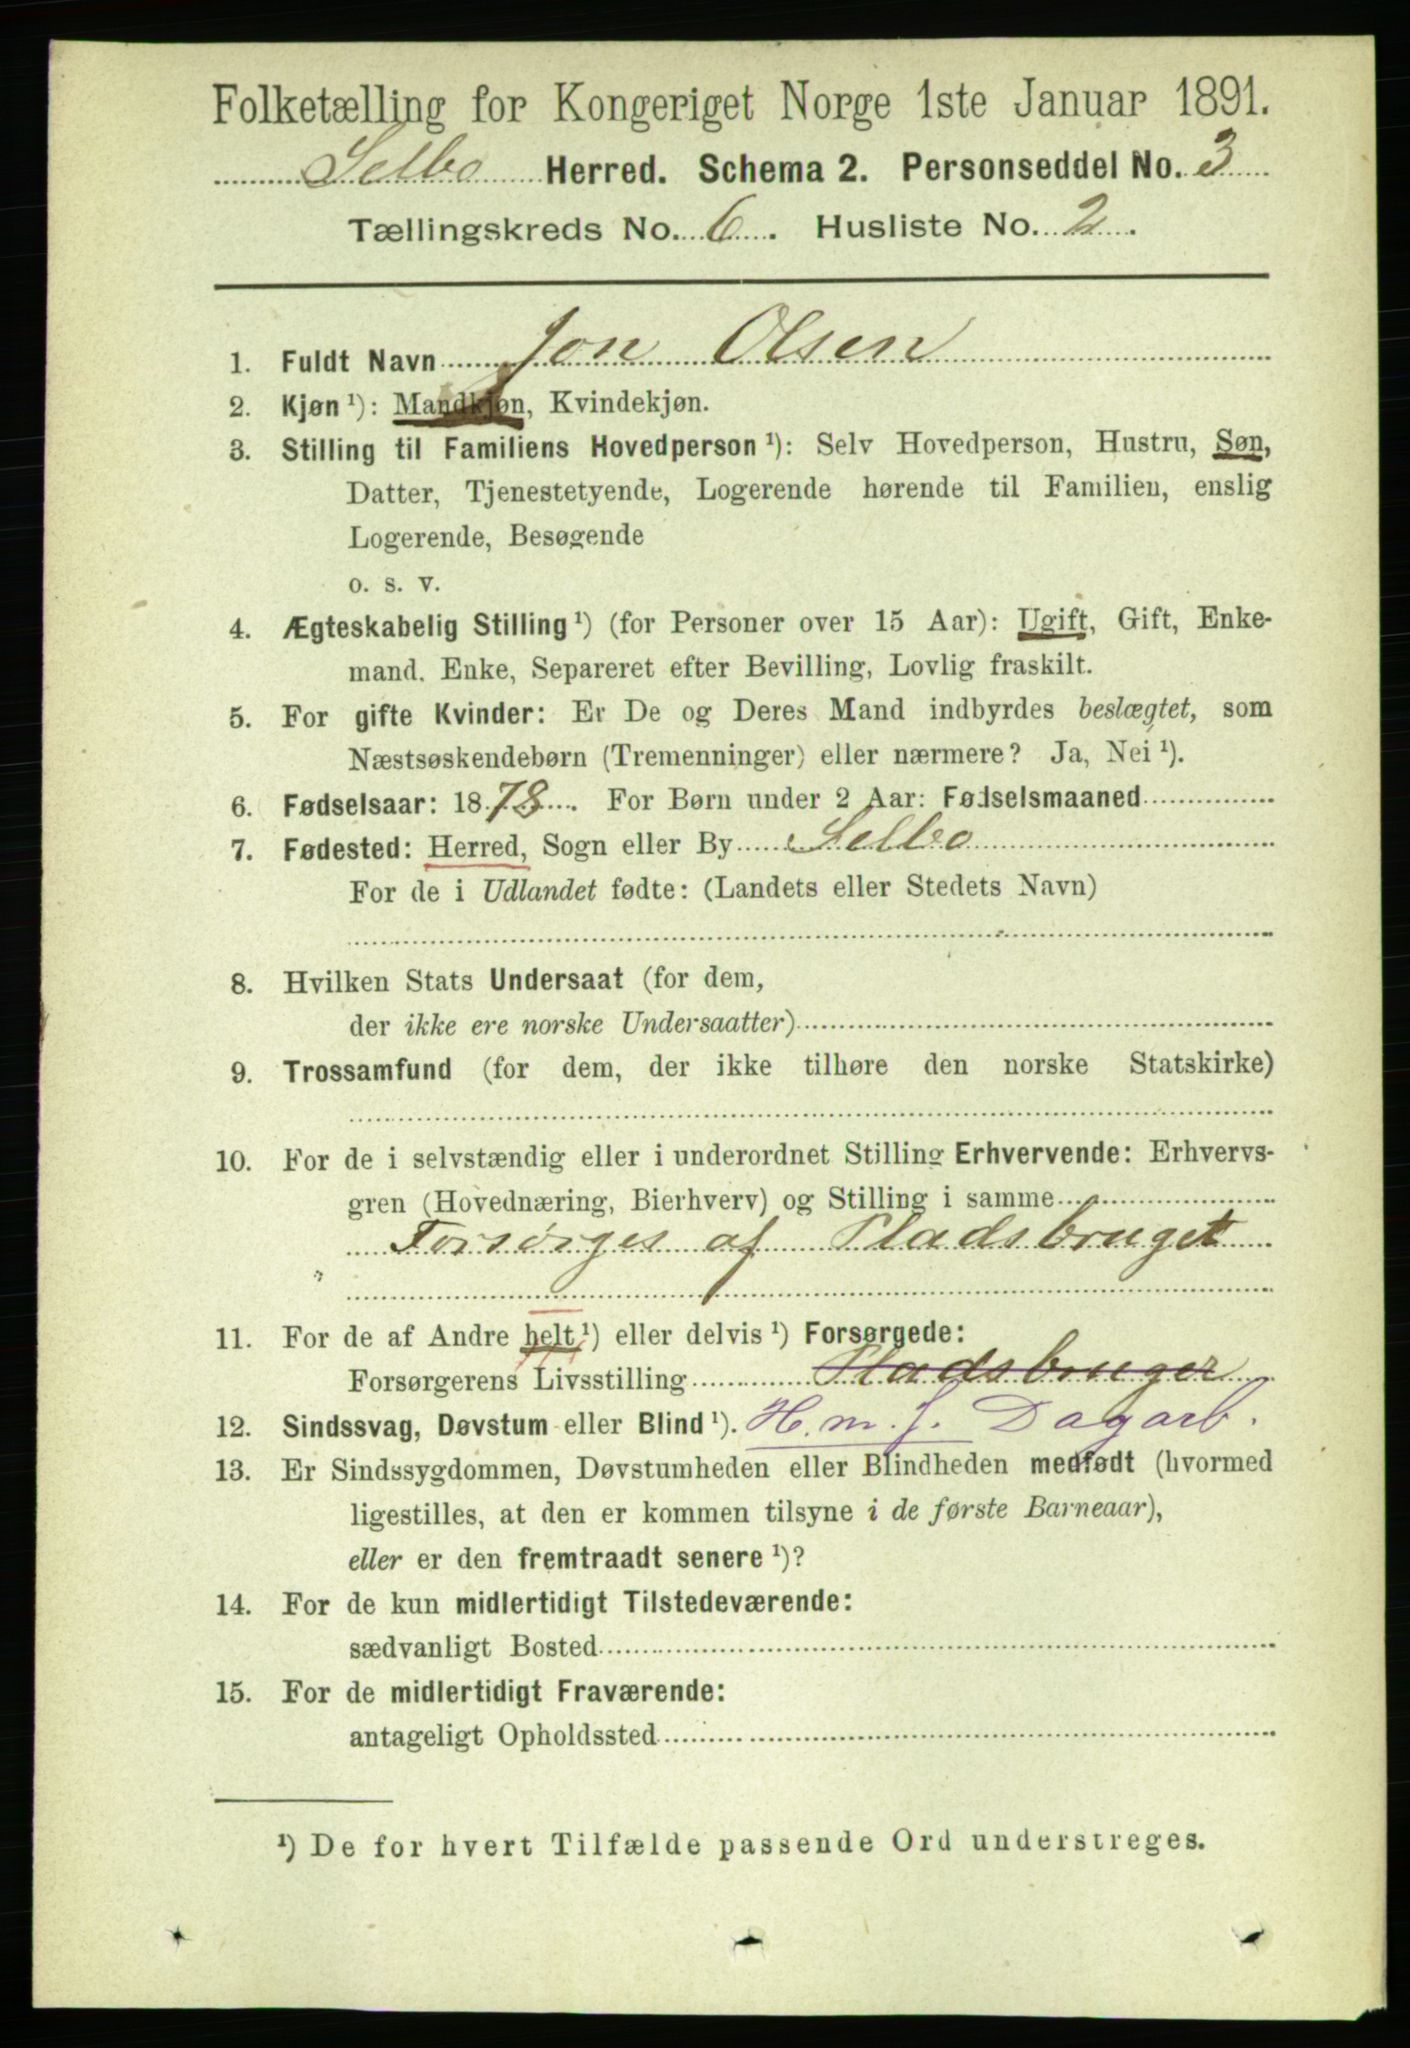 Folketælling for Kongeriget Norge 1ste Januar 1891.
Selbo Herred. Schema 2. Personseddel No. 3
Tællingskreds No. 6. Husliste No. 2.
1. Fuldt Navn Jon Olsen
2. Kjøn ¹): Mandkjøn, Kvindekjøn.
3. Stilling til Familiens Hovedperson ¹): Selv Hovedperson, Hustru, Søn,
Datter, Tjenestetyende, Logerende hørende til Familien, enslig
Logerende, Besøgende
o. s. v.
4. Ægteskabelig Stilling ¹) (for Personer over 15 Aar): Ugift, Gift, Enke-
mand. Enke, Separeret efter Bevilling, Lovlig fraskilt.
5. For gifte Kvinder: Er De og Deres Mand indbyrdes beslægtet, som
Næstsøskendebørn (Tremenninger) eller nærmere? Ja, Nei ¹).
6. Fødselsaar: 1878. For Børn under 2 Aar: Fødselsmaaned
7. Fødested: Herred, Sogn eller By Selbo
For de i Udlandet fødte: (Landets eller Stedets Navn)
8. Hvilken Stats Undersaat (for dem,
der ikke ere norske Undersaatter)
9. Trossamfund (for dem, der ikke tilhøre den norske Statskirke)
10. For de i selvstændig eller i underordnet Stilling Erhvervende: Erhvervs-
gren (Hovednæring, Bierhverv) og Stilling i samme
Forsørges af Pladsbruget
11. For de af Andre helt ¹) eller delvis ¹) Forsørgede:
Forsørgerens Livsstilling Pladsbruger
12. Sindssvag, Døvstum eller Blind ¹). H. m. J. Dagarb.
13. Er Sindssygdommen, Døvstumheden eller Blindheden medfødt (hvormed
ligestilles, at den er kommen tilsyne i de første Barneaar),
eller er den fremtraadt senere ¹)?
14. For de kun midlertidigt Tilstedeværende:
sædvanligt Bosted
15. For de midlertidigt Fraværende:
antageligt Opholdssted
¹) De for hvert Tilfælde passende Ord understreges.